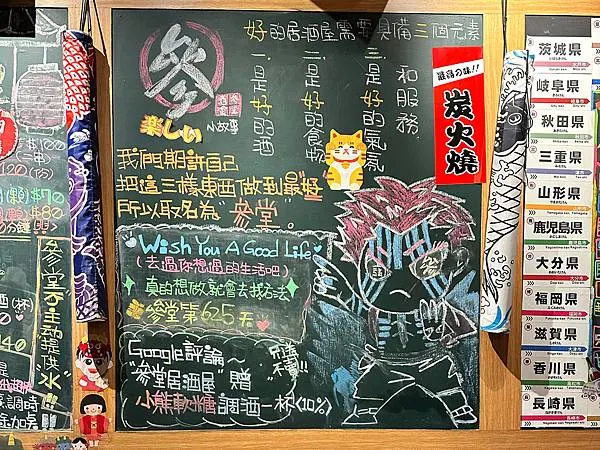 好的居酒屋需要具備三個元素
一、是好的酒
二、是好的食物
三、是好的氣氛
和服務
參
楽しい
小故事
最高の味!!
炭火燒
我們期許自己
把這三樣東西做到最好
所以取名為"參堂"。
Wish You A Good Life
(去過你想過的生活吧)
真的想做就會去找方法
參堂第625天
Google評論～
"參堂居酒屋"贈
小熊軟糖調酒一杯(10%)
$100
(三串)
$120(份)
$70
$80
參堂不主動提供水!!
茨城県
岐阜県
秋田県
三重県
山形県
鹿児島県
大分県
福岡県
滋賀県
香川県
長崎県